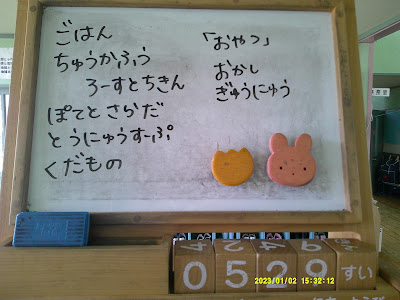 ごはん
ちゅうかふう
ろーすとちきん
ぽてとさらだ
とうにゅうすーぷ
くだもの
「おやつ」
おかし
ぎゅうにゅう
0 5 2 9 すい
2023/01/02 15:32:12